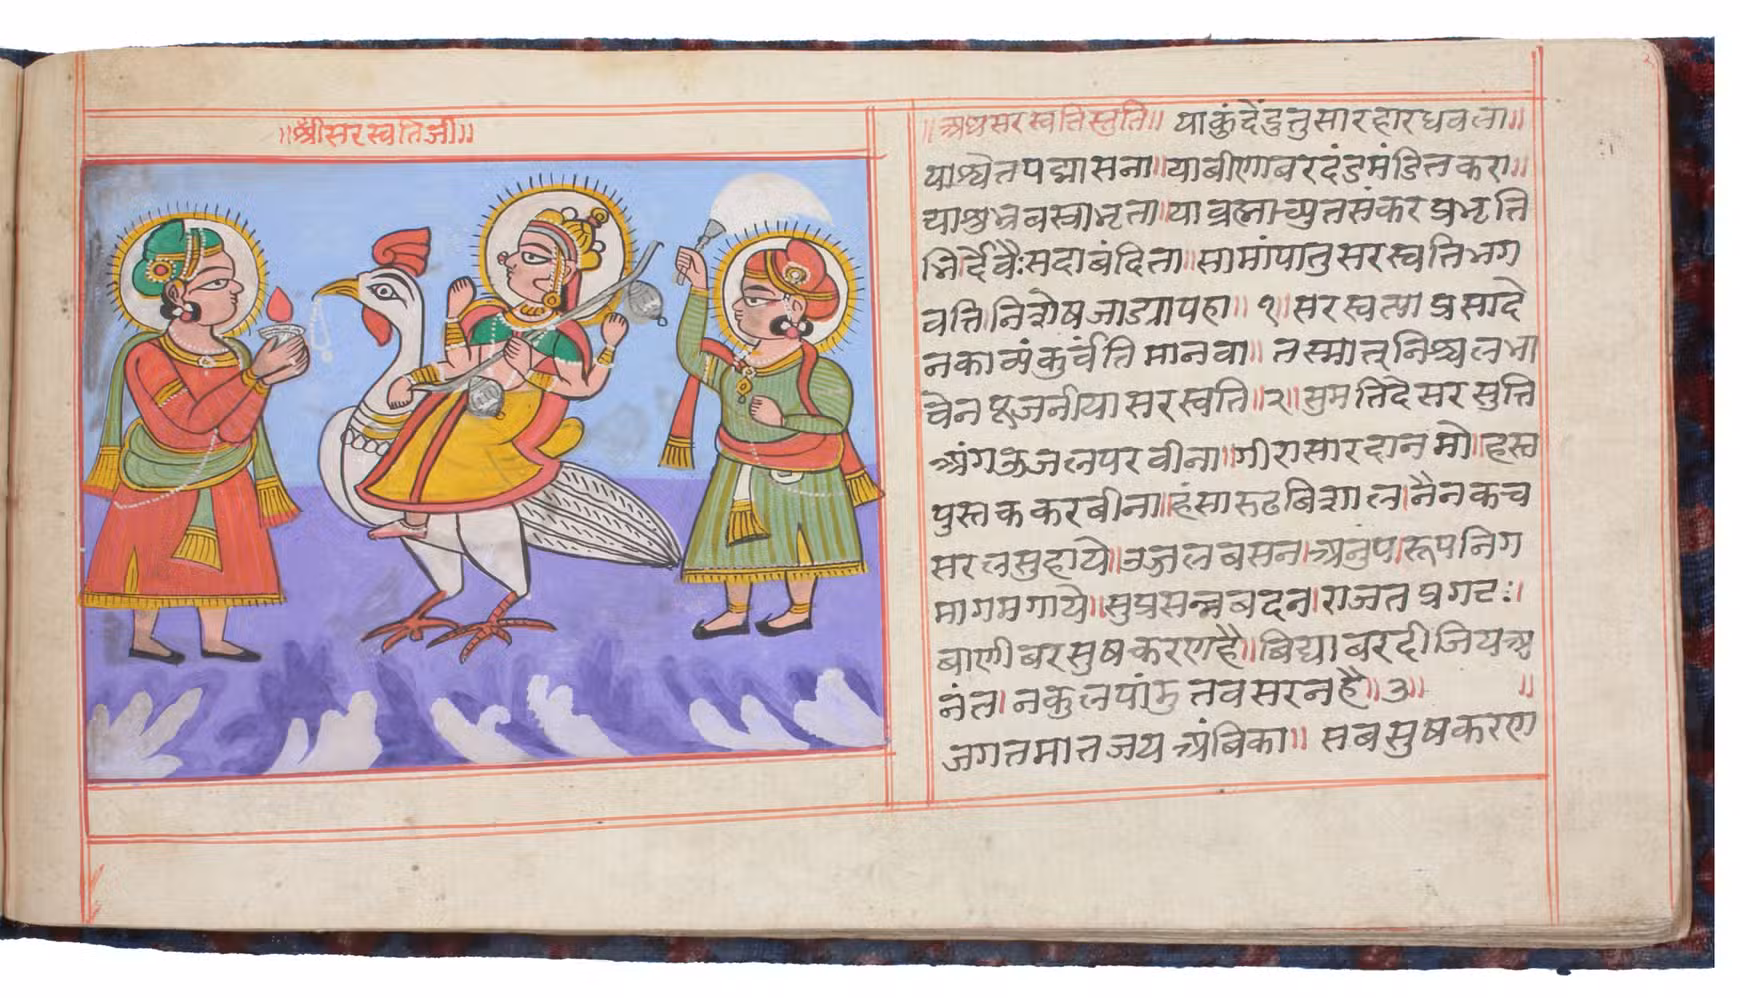 ॥श्रीसरस्वतिजी॥
॥अथसरस्वतिस्तुति॥ याकुंदेंदुतुसारहारधवला॥
याश्वेतपद्मासना॥याबीणाबरदंडमंडितकरा॥
याशुभ्रबस्त्राभृता॥याब्रह्माच्युतसंकरप्रभृति
भिर्देवैःसदाबंदिता॥सामांपातुसरस्वतिभग
वति।निशेषजाड्यापहा॥१॥सरस्वत्याप्रसादे
नकाव्यंकुर्वंतिमानवा॥तस्मात्निश्चलभा
वेनपूजनीयासरस्वति॥२॥सुमतिदेसरसुत्ति
अंगऊजलपरवीना॥गीरासारदानमो॥हस्त
पुस्तककरबीना॥हंसारूढबिशाल।नैनकच
सरलसुहाये॥उजलबसन।अनुंप।रूपनिग
मागमगाये॥सुप्रसन्नबदन।राजतप्रगटः।
बाणीबरसुषकरणहै॥बिद्याबरदीजियअ
नंत।नकुलपांमुतवसरनहै॥३॥ ॥
जगतमातजयअंबिका॥ सबसुषकरण